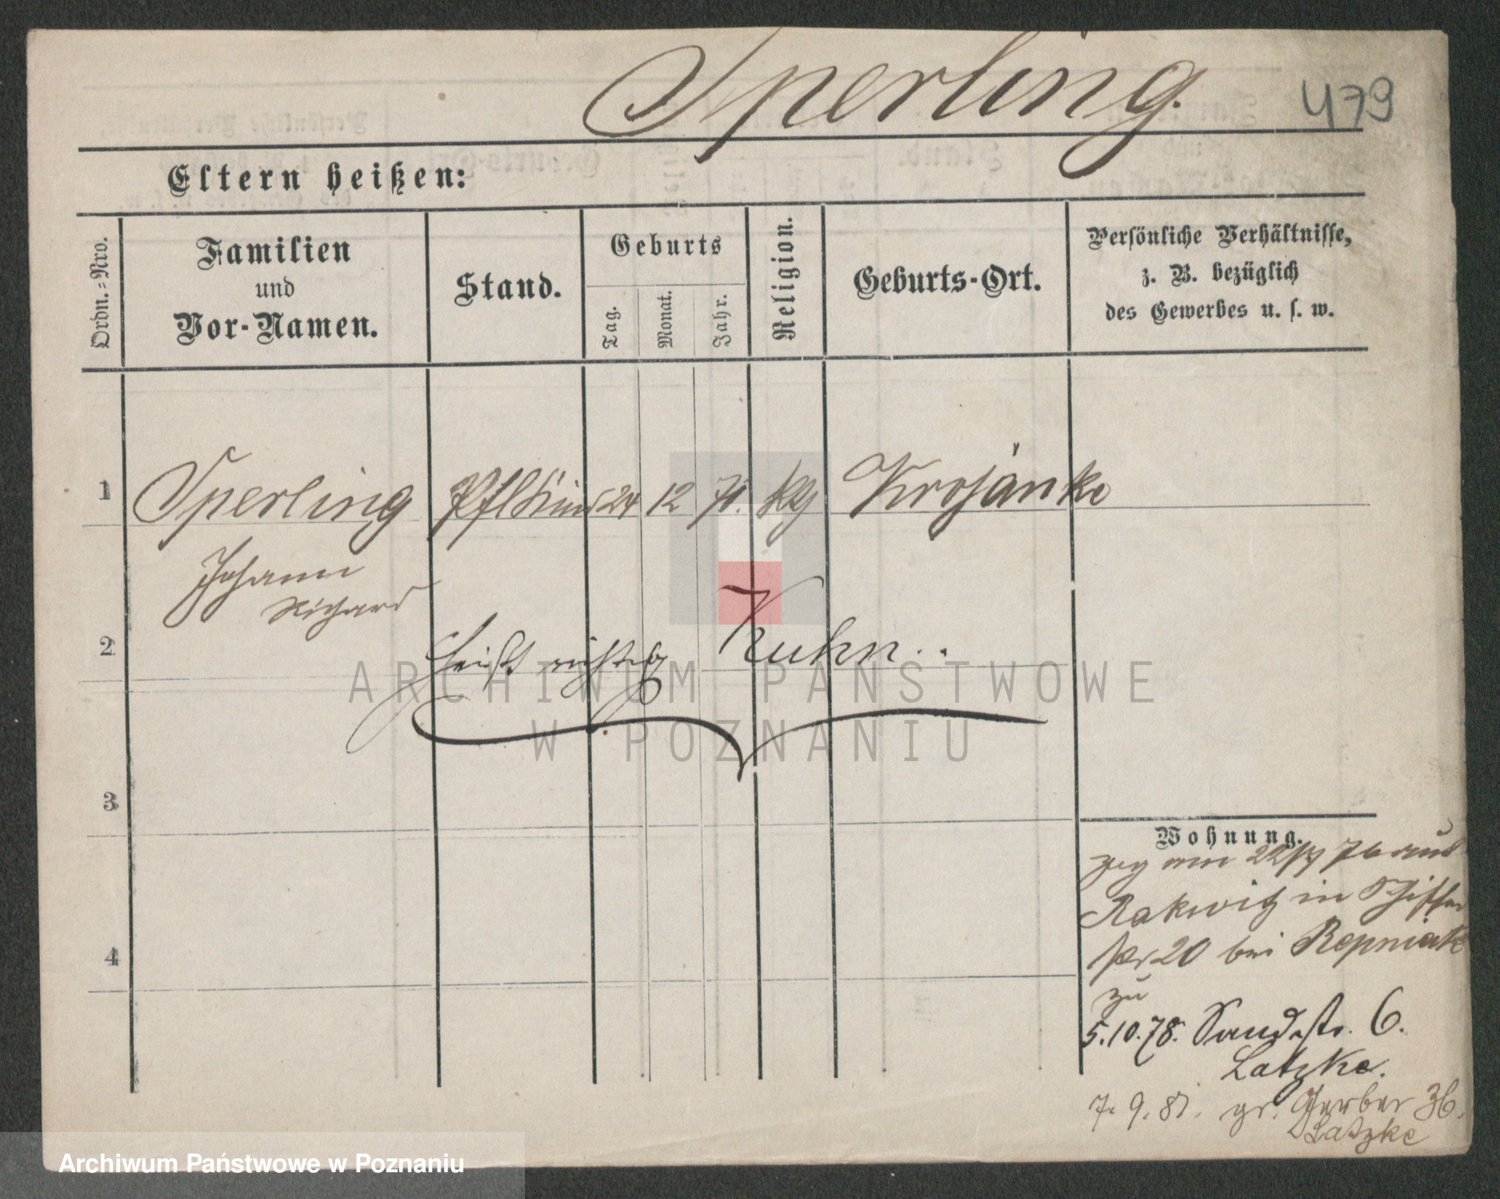 Sperling.
479
Eltern heißen:
Ordn.-Nro.
Familien
und
Vor-Namen.
Stand.
Geburts
Tag.
Monat.
Jahr.
Religion.
Geburts-Ort.
Persönliche Verhältnisse,
z. B. bezüglich
des Gewerbes u. s. w.
1 Sperling Pfl Kind 24 12 71. kg Krojanke
Johann
Richard
2 heißt richtig Kuhn..
3
4
Wohnung.
zog am 76 aus
Rakwitz in Schiffer
str 20 bei Repniak
zu
5.10.78. Sandstr. 6.
Latzke.
7. 9. 81. gr. Gerber 36.
Latzke
ARCHIWUM PAŃSTWOWE
W POZNANIU
Archiwum Państwowe w Poznaniu